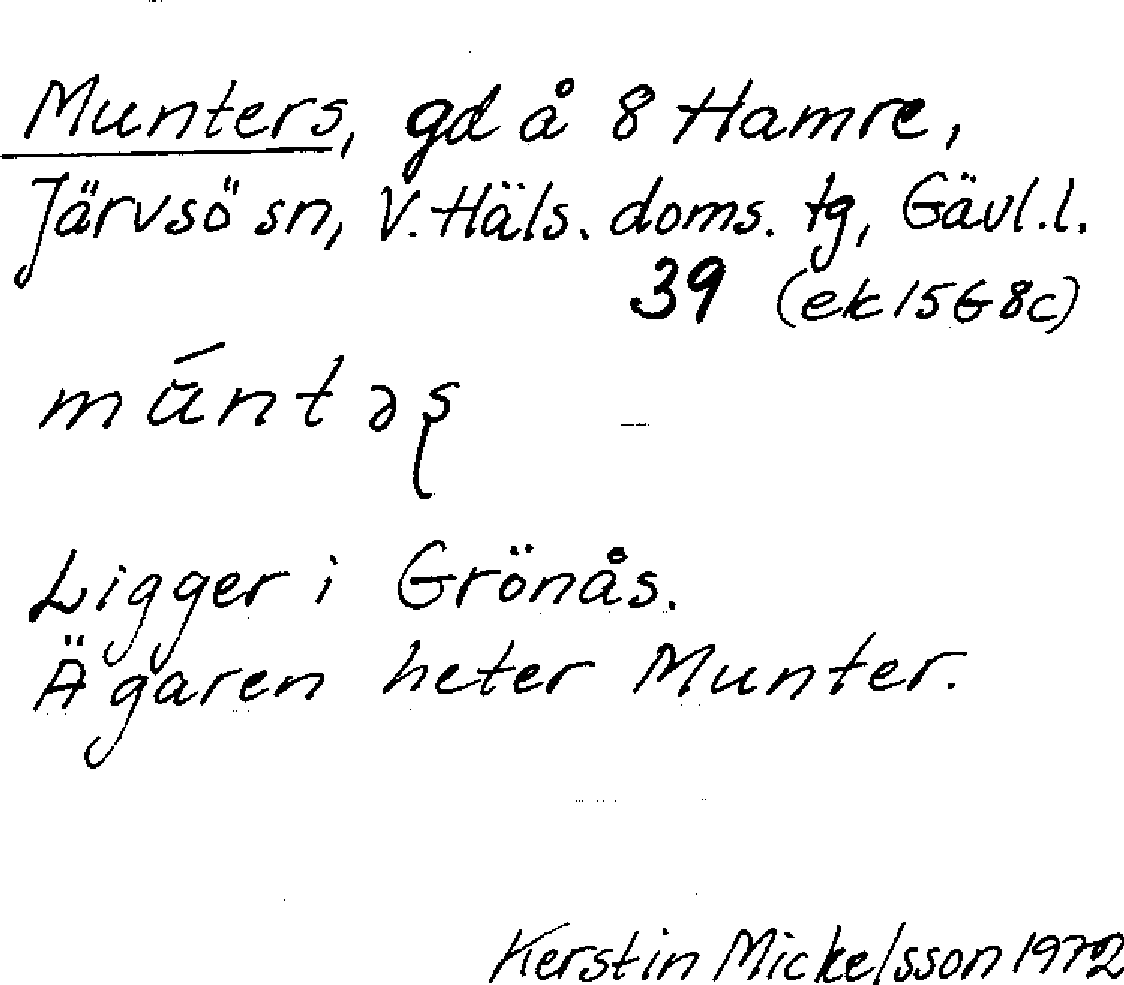 Munters, gd å 8 Hamre,
Järvsö sn, V. Häls. doms. tg, Gävl.l.
39 (ek 15G8c)
múntəʂ
Ligger i Grönås.
Ägaren heter Munter.
Kerstin Mickelsson 1972